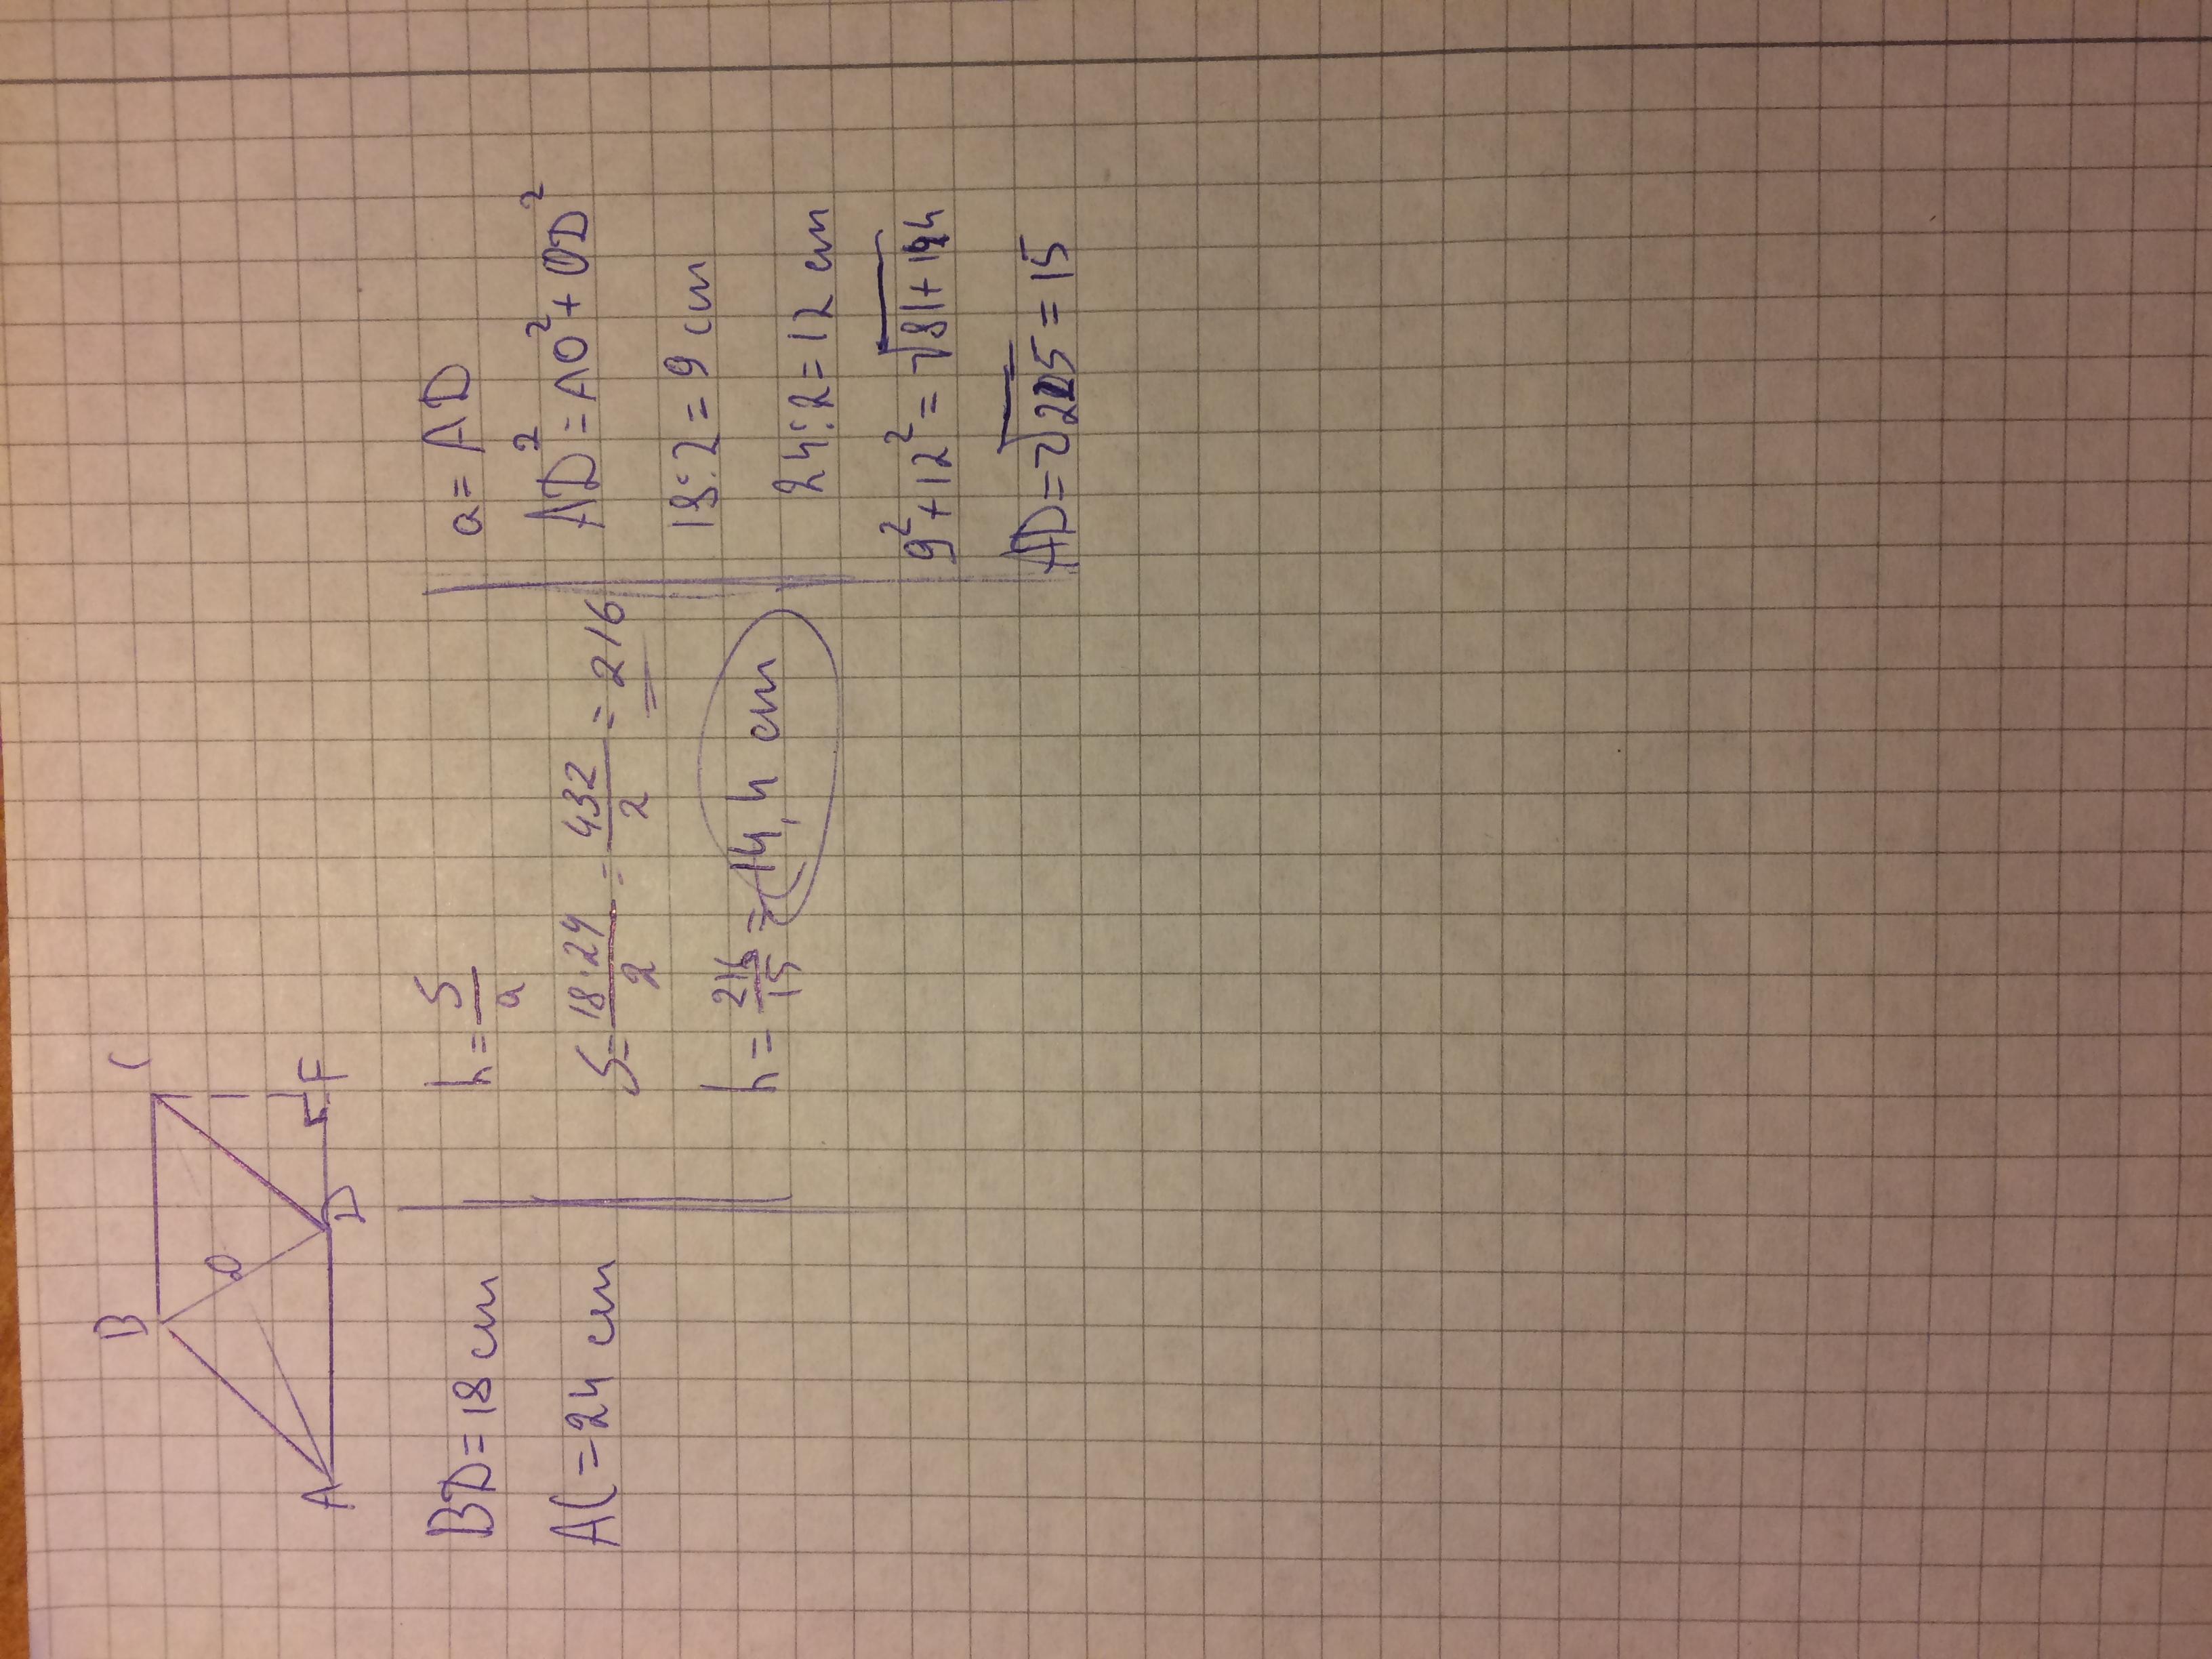 B C
O
A D F
BD=18 cm
AC=24 cm
h=S/a
S=18·24/2=432/2=216
h=216/15=14,4 cm
a=AD
AD²=AO²+OD²
18:2=9 cm
24:2=12 cm
9²+12²=√81+144
AD=√225=15